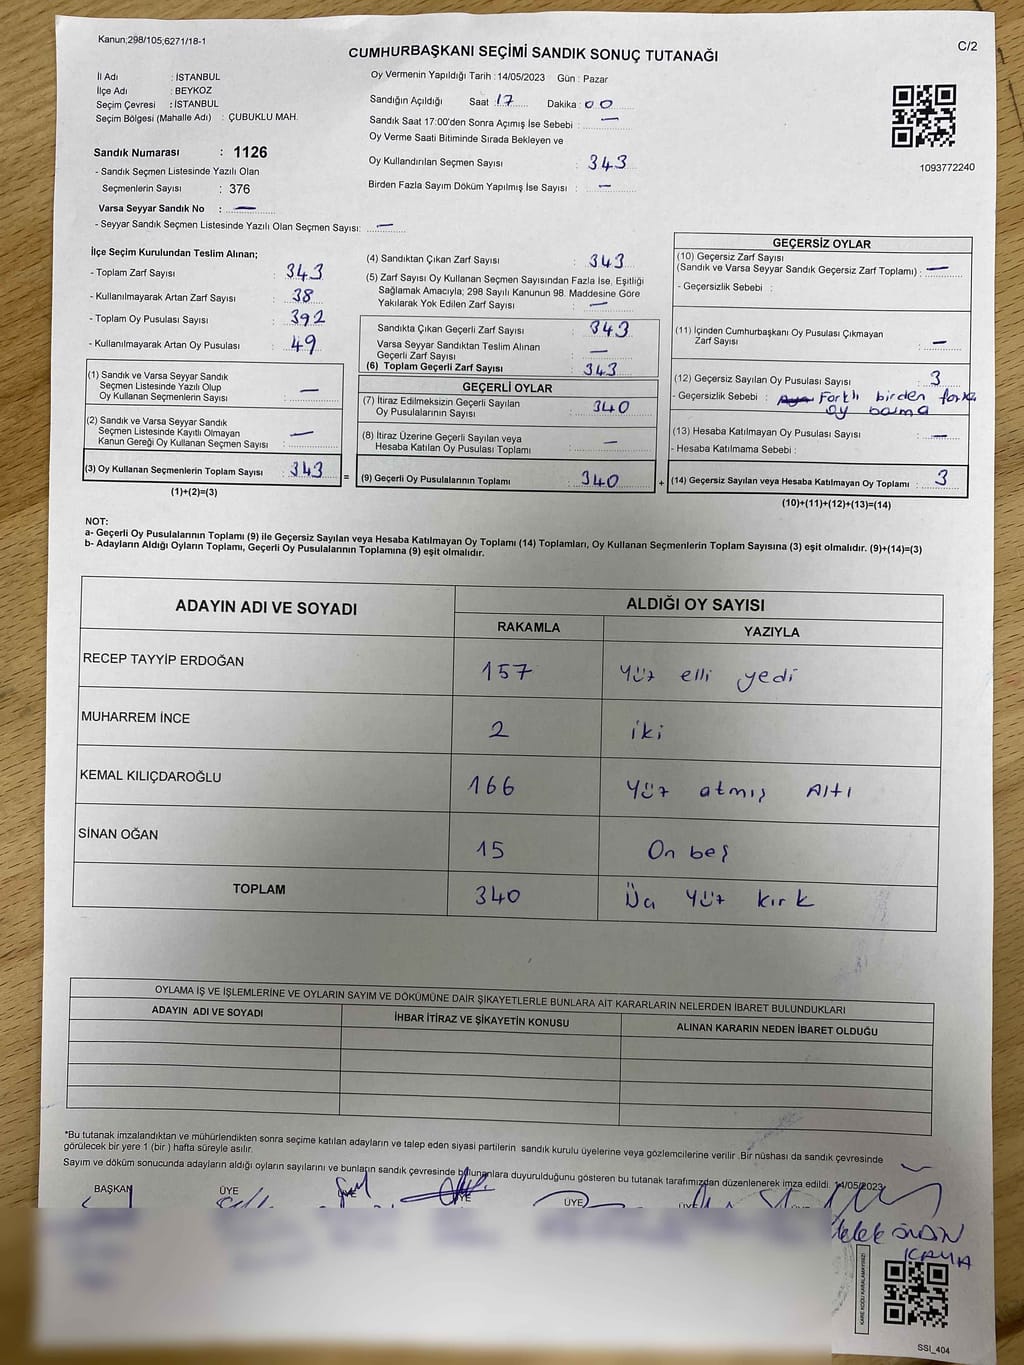 Kanun;298/105;6271/18-1
C/2
CUMHURBAŞKANI SEÇİMİ SANDIK SONUÇ TUTANAĞI
İl Adı : İSTANBUL
İlçe Adı : BEYKOZ
Seçim Çevresi : İSTANBUL
Seçim Bölgesi (Mahalle Adı) : ÇUBUKLU MAH.
Sandık Numarası : 1126
- Sandık Seçmen Listesinde Yazılı Olan
Seçmenlerin Sayısı : 376
Varsa Seyyar Sandık No : —
- Seyyar Sandık Seçmen Listesinde Yazılı Olan Seçmen Sayısı: —
Oy Vermenin Yapıldığı Tarih : 14/05/2023 Gün : Pazar
Sandığın Açıldığı Saat : 17 Dakika : 00
Sandık Saat 17:00'den Sonra Açımış İse Sebebi : —
Oy Verme Saati Bitiminde Sırada Bekleyen ve
Oy Kullandırılan Seçmen Sayısı : 343
Birden Fazla Sayım Döküm Yapılmış İse Sayısı : —
1093772240
İlçe Seçim Kurulundan Teslim Alınan;
- Toplam Zarf Sayısı : 343
- Kullanılmayarak Artan Zarf Sayısı : 38
- Toplam Oy Pusulası Sayısı : 392
- Kullanılmayarak Artan Oy Pusulası : 49
(1) Sandık ve Varsa Seyyar Sandık
Seçmen Listesinde Yazılı Olup
Oy Kullanan Seçmenlerin Sayısı : —
(2) Sandık ve Varsa Seyyar Sandık
Seçmen Listesinde Kayıtlı Olmayan
Kanun Gereği Oy Kullanan Seçmen Sayısı : —
(3) Oy Kullanan Seçmenlerin Toplam Sayısı : 343
(1)+(2)=(3)
=
(4) Sandıktan Çıkan Zarf Sayısı : 343
(5) Zarf Sayısı Oy Kullanan Seçmen Sayısından Fazla İse, Eşitliği
Sağlamak Amacıyla; 298 Sayılı Kanunun 98. Maddesine Göre
Yakılarak Yok Edilen Zarf Sayısı : —
Sandıkta Çıkan Geçerli Zarf Sayısı : 343
Varsa Seyyar Sandıktan Teslim Alınan
Geçerli Zarf Sayısı : —
(6) Toplam Geçerli Zarf Sayısı : 343
GEÇERLİ OYLAR
(7) İtiraz Edilmeksizin Geçerli Sayılan
Oy Pusulalarının Sayısı : 340
(8) İtiraz Üzerine Geçerli Sayılan veya
Hesaba Katılan Oy Pusulası Toplamı : —
(9) Geçerli Oy Pusulalarının Toplamı : 340
+
GEÇERSİZ OYLAR
(10) Geçersiz Zarf Sayısı
(Sandık ve Varsa Seyyar Sandık Geçersiz Zarf Toplamı) : —
- Geçersizlik Sebebi :
(11) İçinden Cumhurbaşkanı Oy Pusulası Çıkmayan
Zarf Sayısı : —
(12) Geçersiz Sayılan Oy Pusulası Sayısı : 3
- Geçersizlik Sebebi : Farklı birden fazla
oy basma
(13) Hesaba Katılmayan Oy Pusulası Sayısı : —
- Hesaba Katılmama Sebebi :
(14) Geçersiz Sayılan veya Hesaba Katılmayan Oy Toplamı : 3
(10)+(11)+(12)+(13)=(14)
NOT:
a- Geçerli Oy Pusulalarının Toplamı (9) ile Geçersiz Sayılan veya Hesaba Katılmayan Oy Toplamı (14) Toplamları, Oy Kullanan Seçmenlerin Toplam Sayısına (3) eşit olmalıdır. (9)+(14)=(3)
b- Adayların Aldığı Oyların Toplamı, Geçerli Oy Pusulalarının Toplamına (9) eşit olmalıdır.
ADAYIN ADI VE SOYADI ALDIĞI OY SAYISI
RAKAMLA YAZIYLA
RECEP TAYYİP ERDOĞAN 157 Yüz elli yedi
MUHARREM İNCE 2 iki
KEMAL KILIÇDAROĞLU 166 Yüz atmış Altı
SİNAN OĞAN 15 On beş
TOPLAM 340 Üç Yüz kırk
OYLAMA İŞ VE İŞLEMLERİNE VE OYLARIN SAYIM VE DÖKÜMÜNE DAİR ŞİKAYETLERLE BUNLARA AİT KARARLARIN NELERDEN İBARET BULUNDUKLARI
ADAYIN ADI VE SOYADI İHBAR İTİRAZ VE ŞİKAYETİN KONUSU ALINAN KARARIN NEDEN İBARET OLDUĞU
*Bu tutanak imzalandıktan ve mühürlendikten sonra seçime katılan adayların ve talep eden siyasi partilerin sandık kurulu üyelerine veya gözlemcilerine verilir .Bir nüshası da sandık çevresinde
görülecek bir yere 1 (bir ) hafta süreyle asılır.
Sayım ve döküm sonucunda adayların aldığı oyların sayılarını ve bunların sandık çevresinde bulunanlara duyurulduğunu gösteren bu tutanak tarafımızdan düzenlenerek imza edildi. 14/05/2023
BAŞKAN ÜYE ÜYE ÜYE ÜYE
KAYA
KARE KODU KARALAMAYINIZ
SSI_404